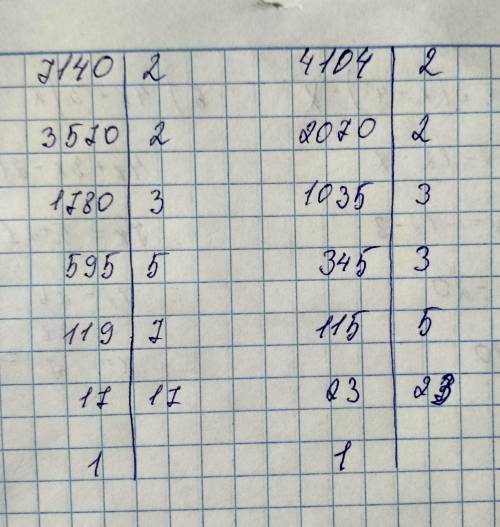 7140 | 2 4104 | 2
3570 | 2 2070 | 2
1780 | 3 1035 | 3
595 | 5 345 | 3
119 | 7 115 | 5
17 | 17 23 | 23
1 | 1 |